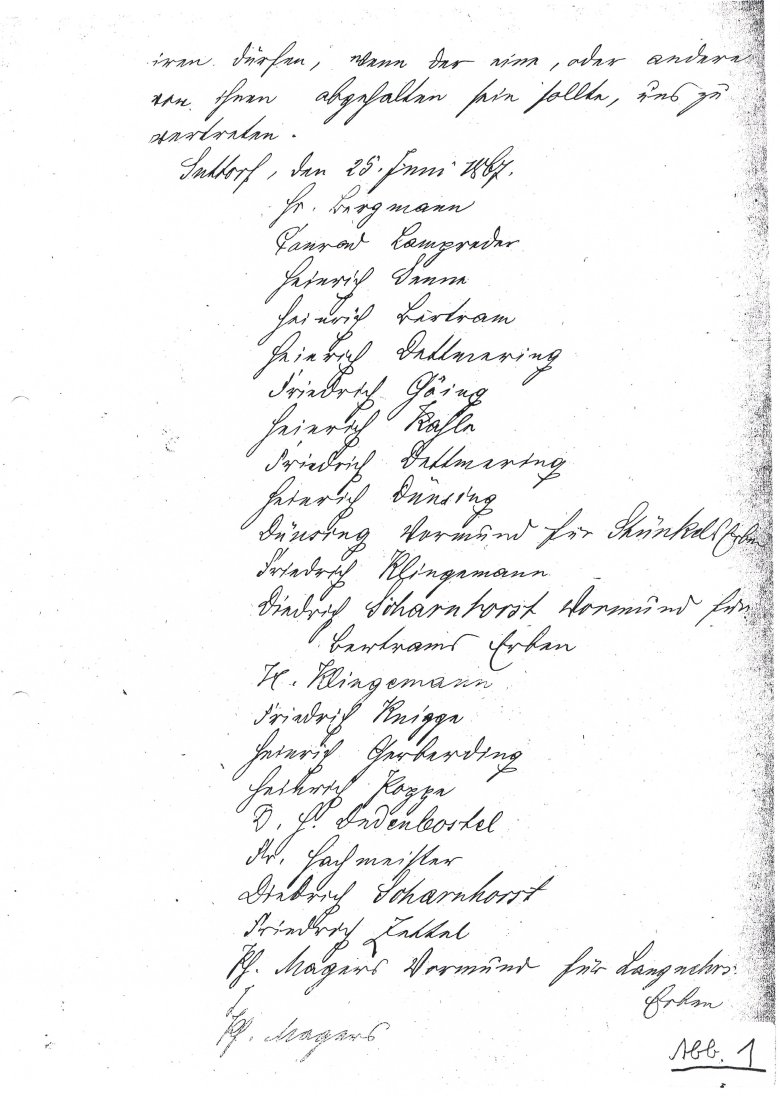 iren dürfen, wenn der eine, oder andere
von ihnen abgehalten sein sollte, uns zu
vertreten.
Suttorf, den 25. Juni 1867.
Hr. Bergmann
Conrad Lampreder
Heinrich Senne
Heinrich Bertram
Heinrich Dettmering
Friedrich Göing
Heinrich Kahle
Friedrich Dettmering
Heinrich Dünsing
Dünsing Vormund für Stünkels Erben
Friedrich Klingemann
Diedrich Scharnhorst Vormund für
Bertrams Erben
H. Klingemann
Friedrich Knigge
Heinrich Gerberding
Heinrich Koppe
D. H. Dedenbostel
Fr. Hachmeister
Diedrich Scharnhorst
Friedrich Zettel
Ph. Magers Vormund für
Erben
Ph. Magers
Abb. 1